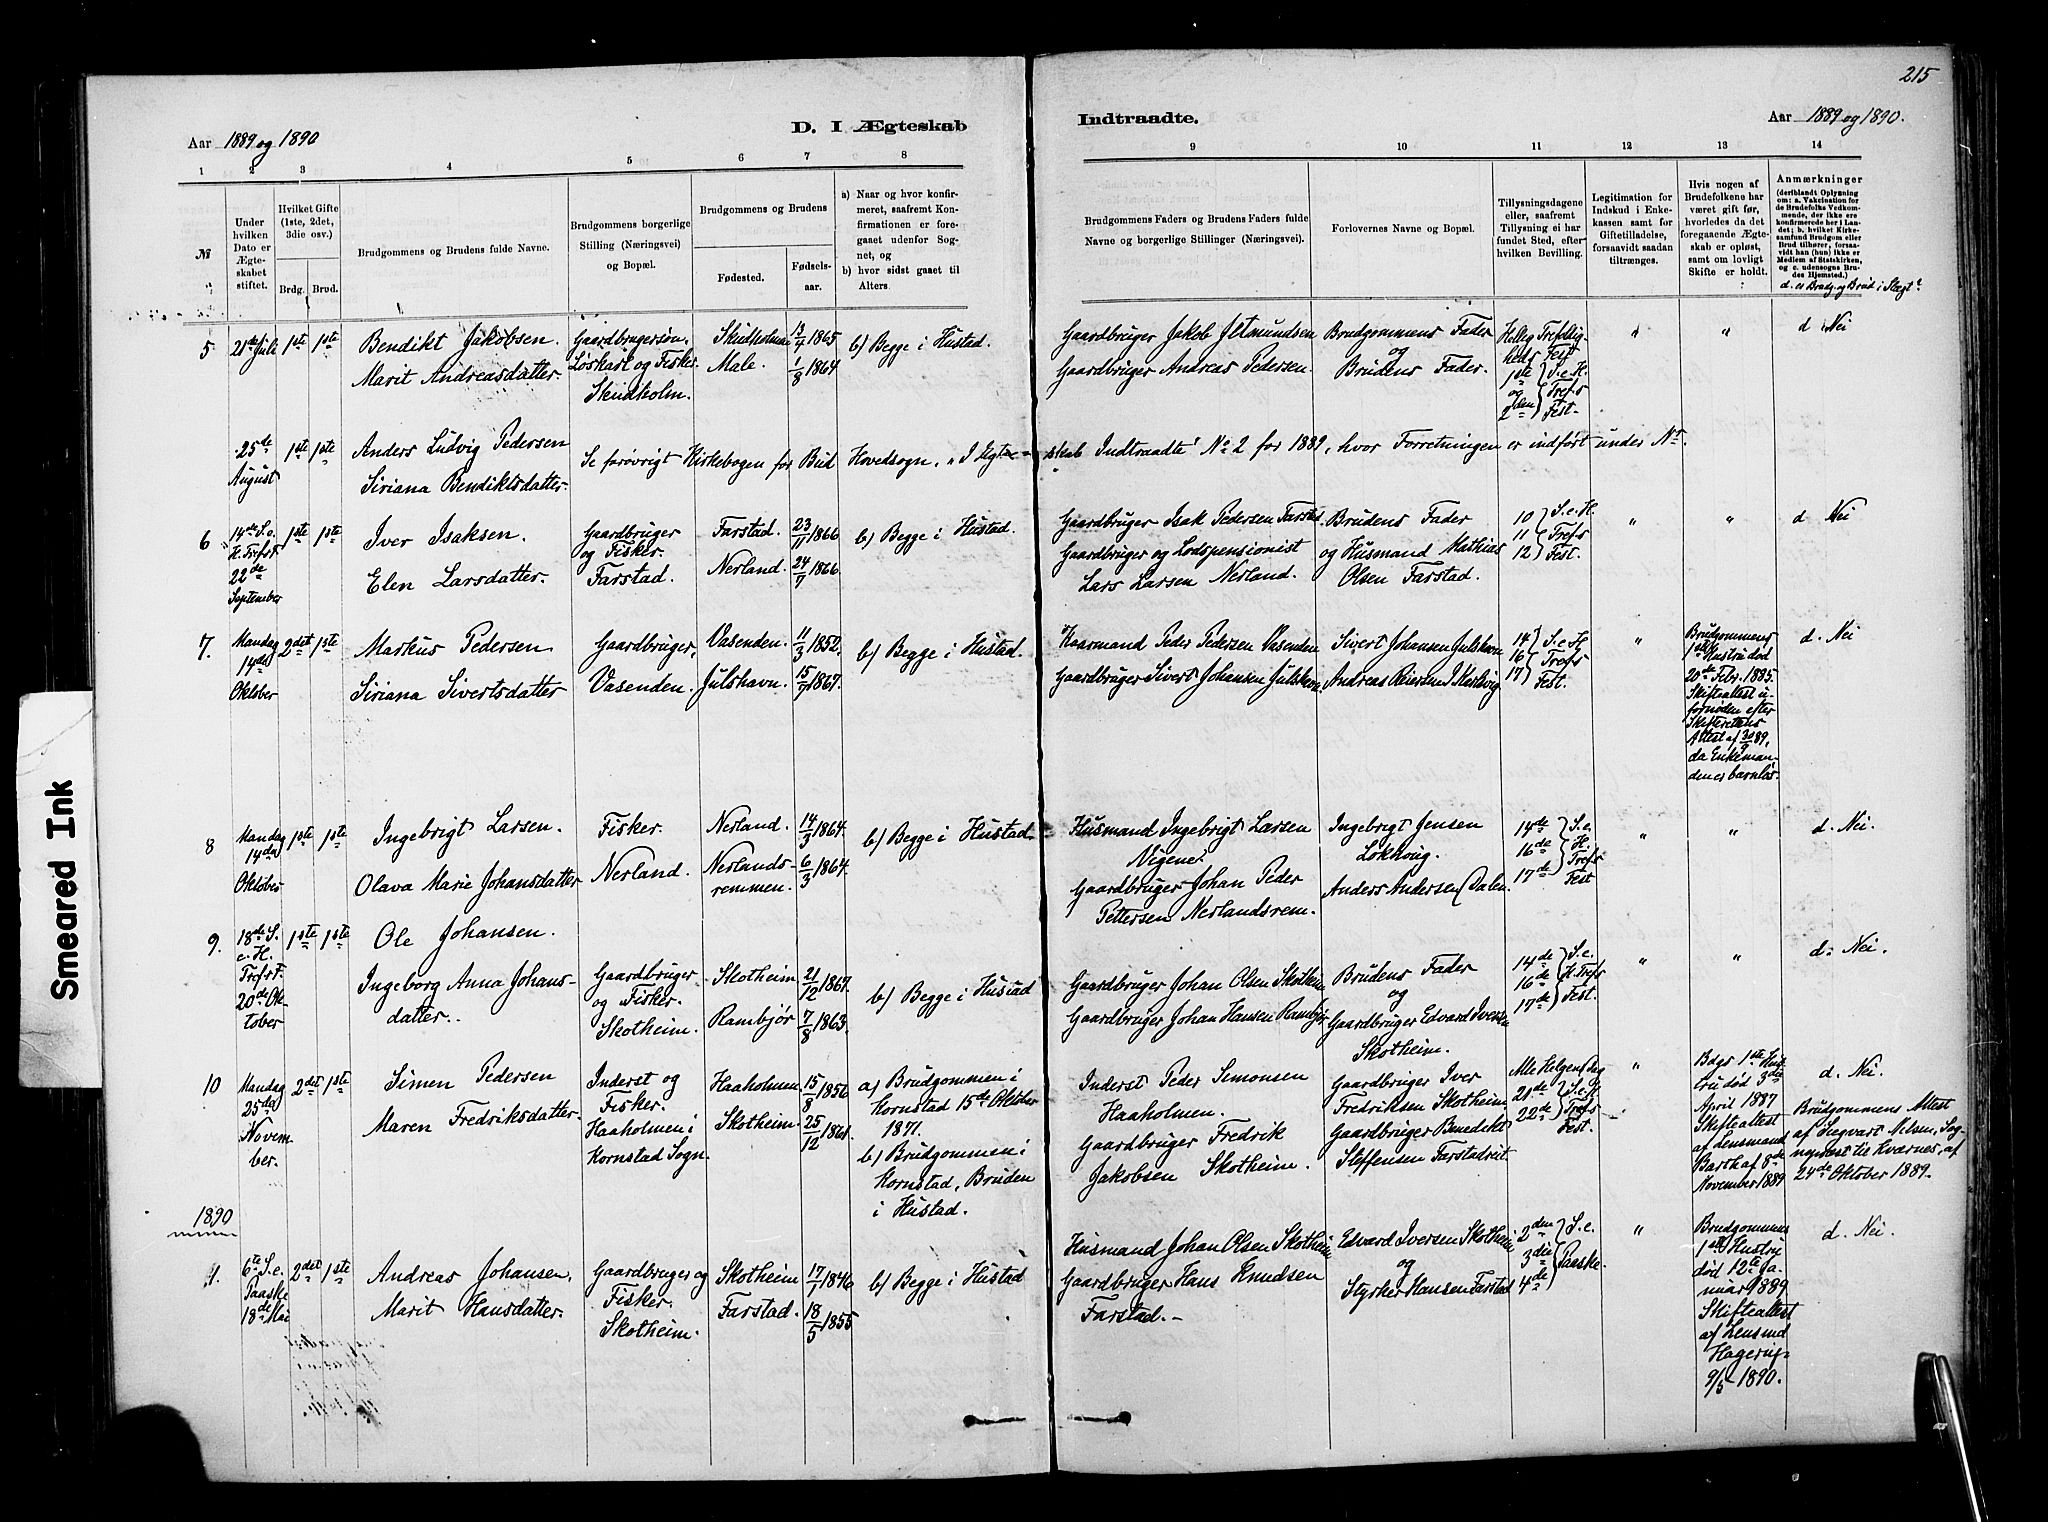 215
D. I Ægteskab Indtraadte.
Aar 1889 og 1890
Aar 1889 og 1890.
1 2 3 4 5 6 7 8 9 10 11 12 13 14
№
Under hvilken Dato er Ægteskabet stiftet.
Hvilket Gifte (1ste, 2det, 3die osv.)
Brdg. Brud.
Brudgommens og Brudens fulde Navne.
Brudgommens borgerlige Stilling (Næringsvei) og Bopæl.
Brudgommens og Brudens
Fødested.
Fødselsaar.
a) Naar og hvor konfirmeret, saafremt Konfirmationen er foregaaet udenfor Sognet, og
b) hvor sidst gaaet til Alters.
Brudgommens Faders og Brudens Faders fulde Navne og borgerlige Stillinger (Næringsvei).
Forlovernes Navne og Bopæl.
Tillysningsdagene eller, saafremt Tillysning ei har fundet Sted, efter hvilken Bevilling.
Legitimation for Indskud i Enkekassen samt for Giftetilladelse, forsaavidt saadan tiltrænges.
Hvis nogen af Brudefolkene har været gift før, hvorledes da det foregaaende Ægteskab er opløst, samt om lovligt Skifte er holdt.
Anmærkninger
(deriblandt Oplysning om: a. Vakcination for de Brudefolks Vedkommende, der ikke ere konfirmerede her i Landet; b. hvilket Kirkesamfund Brudgom eller Brud tilhører, forsaavidt han (hun) ikke er Medlem af Statskirken, og c. udensogns Brudes Hjemsted.)
d. er Brudg. og Brud i Slægt?
5 21de Juli 1ste 1ste
Bendikt Jakobsen.
Marit Andreasdatter.
Gaardbrugersøn,
Løskarl og Fisker
Skindholm.
Skindholmen 13/4 1865
Male. 1/8 1864
b) Begge i Hustad.
Gaardbruger Jakob Jetmundsen
Gaardbruger Andreas Pedersen.
Brudgommens Fader
og
Brudens Fader.
Hellig Trefoldigheds Fest
1ste og 2den S. e. H. Trefs Fest.
" "
d Nei
25de August 1ste 1ste
Anders Ludvig Pedersen
Siriana Bendiktsdatter.
Se forøvrigt Kirkebogen for Bud Hovedsogn, "I Ægteskab Indtraadte" No 2 for 1889, hvor Forretningen er indført under Nr.
6 14de S. e. H. Trefs F. 22de September 1ste 1ste
Iver Isaksen.
Elen Larsdatter.
Gaardbruger
og Fisker.
Farstad.
Farstad. 23/11 1866
Nerland. 24/7 1866
b) Begge i Hustad.
Gaardbruger Isak Pedersen Farstad
Gaardbruger og Lodspensionist
Lars Larsen Nerland.
Brudens Fader
og Husmand Mathias
Olsen Farstad.
10 11 12 S. e. H. Trefs Fest.
" "
d Nei
7. Mandag 14de Oktober 2det 1ste
Markus Pedersen
Siriana Sivertsdatter
Gaardbruger,
Vasenden.
Vasenden. 11/3 1852.
Julshavn. 15/7 1867.
b) Begge i Hustad.
Kaarmand Peder Pedersen Vasenden
Gaardbruger Sivert Johansen Julshavn
Sivert Johansen Julshavn
14 16 17 S. e. H. Trefs Fest.
"
Brudgommens
1ste Hustru død
20de Febr. 1885.
Skifteattest ufornøden efter
Skifterettens
Attest af 30/9 89,
da Enkemanden er barnløs.
d. Nei
8 Mandag 14de Oktober 1ste 1ste
Ingebrigt Larsen.
Olava Marie Johansdatter
Fisker.
Nerland.
Nerland. 14/3 1864.
Nerlandsremmen. 6/3 1864.
b) Begge i Hustad.
Husmand Ingebrigt Larsen
Gaardbruger Johan Peder
Pettersen Nerlandsrem.
Ingebrigt Jensen
Anders Andersen Dalen.
14de 16de 17de S. e. H. Trefs Fest
" "
d. Nei.
9. 18de S. e. H. Trefs F. 20de Oktober 1ste 1ste
Ole Johansen.
Ingeborg Anna Johansdatter.
Gaardbruger
og Fisker.
Skotheim.
Skotheim 21/12 1867.
Rambjør 7/8 1863.
b) Begge i Hustad
Gaardbruger Johan Olsen Skotheim
Gaardbruger Johan Hansen Rambjør
Brudens Fader
og
Gaardbruger Edvard Iversen
Skotheim.
14de 16de 17de S. e. H. Trefs Fest.
" "
d. Nei.
10 Mandag 25de November. 2det 1ste
Simen Pedersen
Maren Fredriksdatter.
Inderst og
Fisker.
Haaholmen i
Kornstad Sogn.
Haaholmen 15/8 1856
Skotheim 25/12 1861.
a) Brudgommen i
Kornstad 15de Oktober
1871.
b) Brudgommen i
Kornstad, Bruden
i Hustad.
Inderst Peder Simonsen
Haaholmen.
Gaardbruger Fredrik
Jakobsen Skotheim.
Gaardbruger Iver
Fredriksen Skotheim
Gaardbruger Benedikt
Steffensen Farstadreit
Alle Helgens Dag
21de 22de S. e. H. Trefs Fest.
"
Bdgs 1ste Hustru død 3die
April 1887
Skifteattest
af Lensmand
Barth af 8de
November 1889
d. Nei.
Brudgommens Attest
af Segvart Nilsen, Sogneprest til Kværnes, af
24de Oktober 1889.
1890
1. 6te S. e. Paaske 18de Mai 2det 1ste
Andreas Johansen.
Marit Hansdatter.
Gaardbruger og
Fisker.
Skotheim.
Skotheim 17/1 1846
Farstad. 18/5 1855
b) Begge i Hustad
Husmand Johan Olsen Skotheim
Gaardbruger Hans Knudsen
Farstad.
Edvard Iversen Skotheim
og
Styrker Hansen Farstad
2den 3die 4de S. e. Paaske.
"
Brudgommens
1ste Hustru
død 12te Januar 1889
Skifteattest
af Lensmd
Hagerup
9/5 1890.
d. Nei.
Smeared Ink